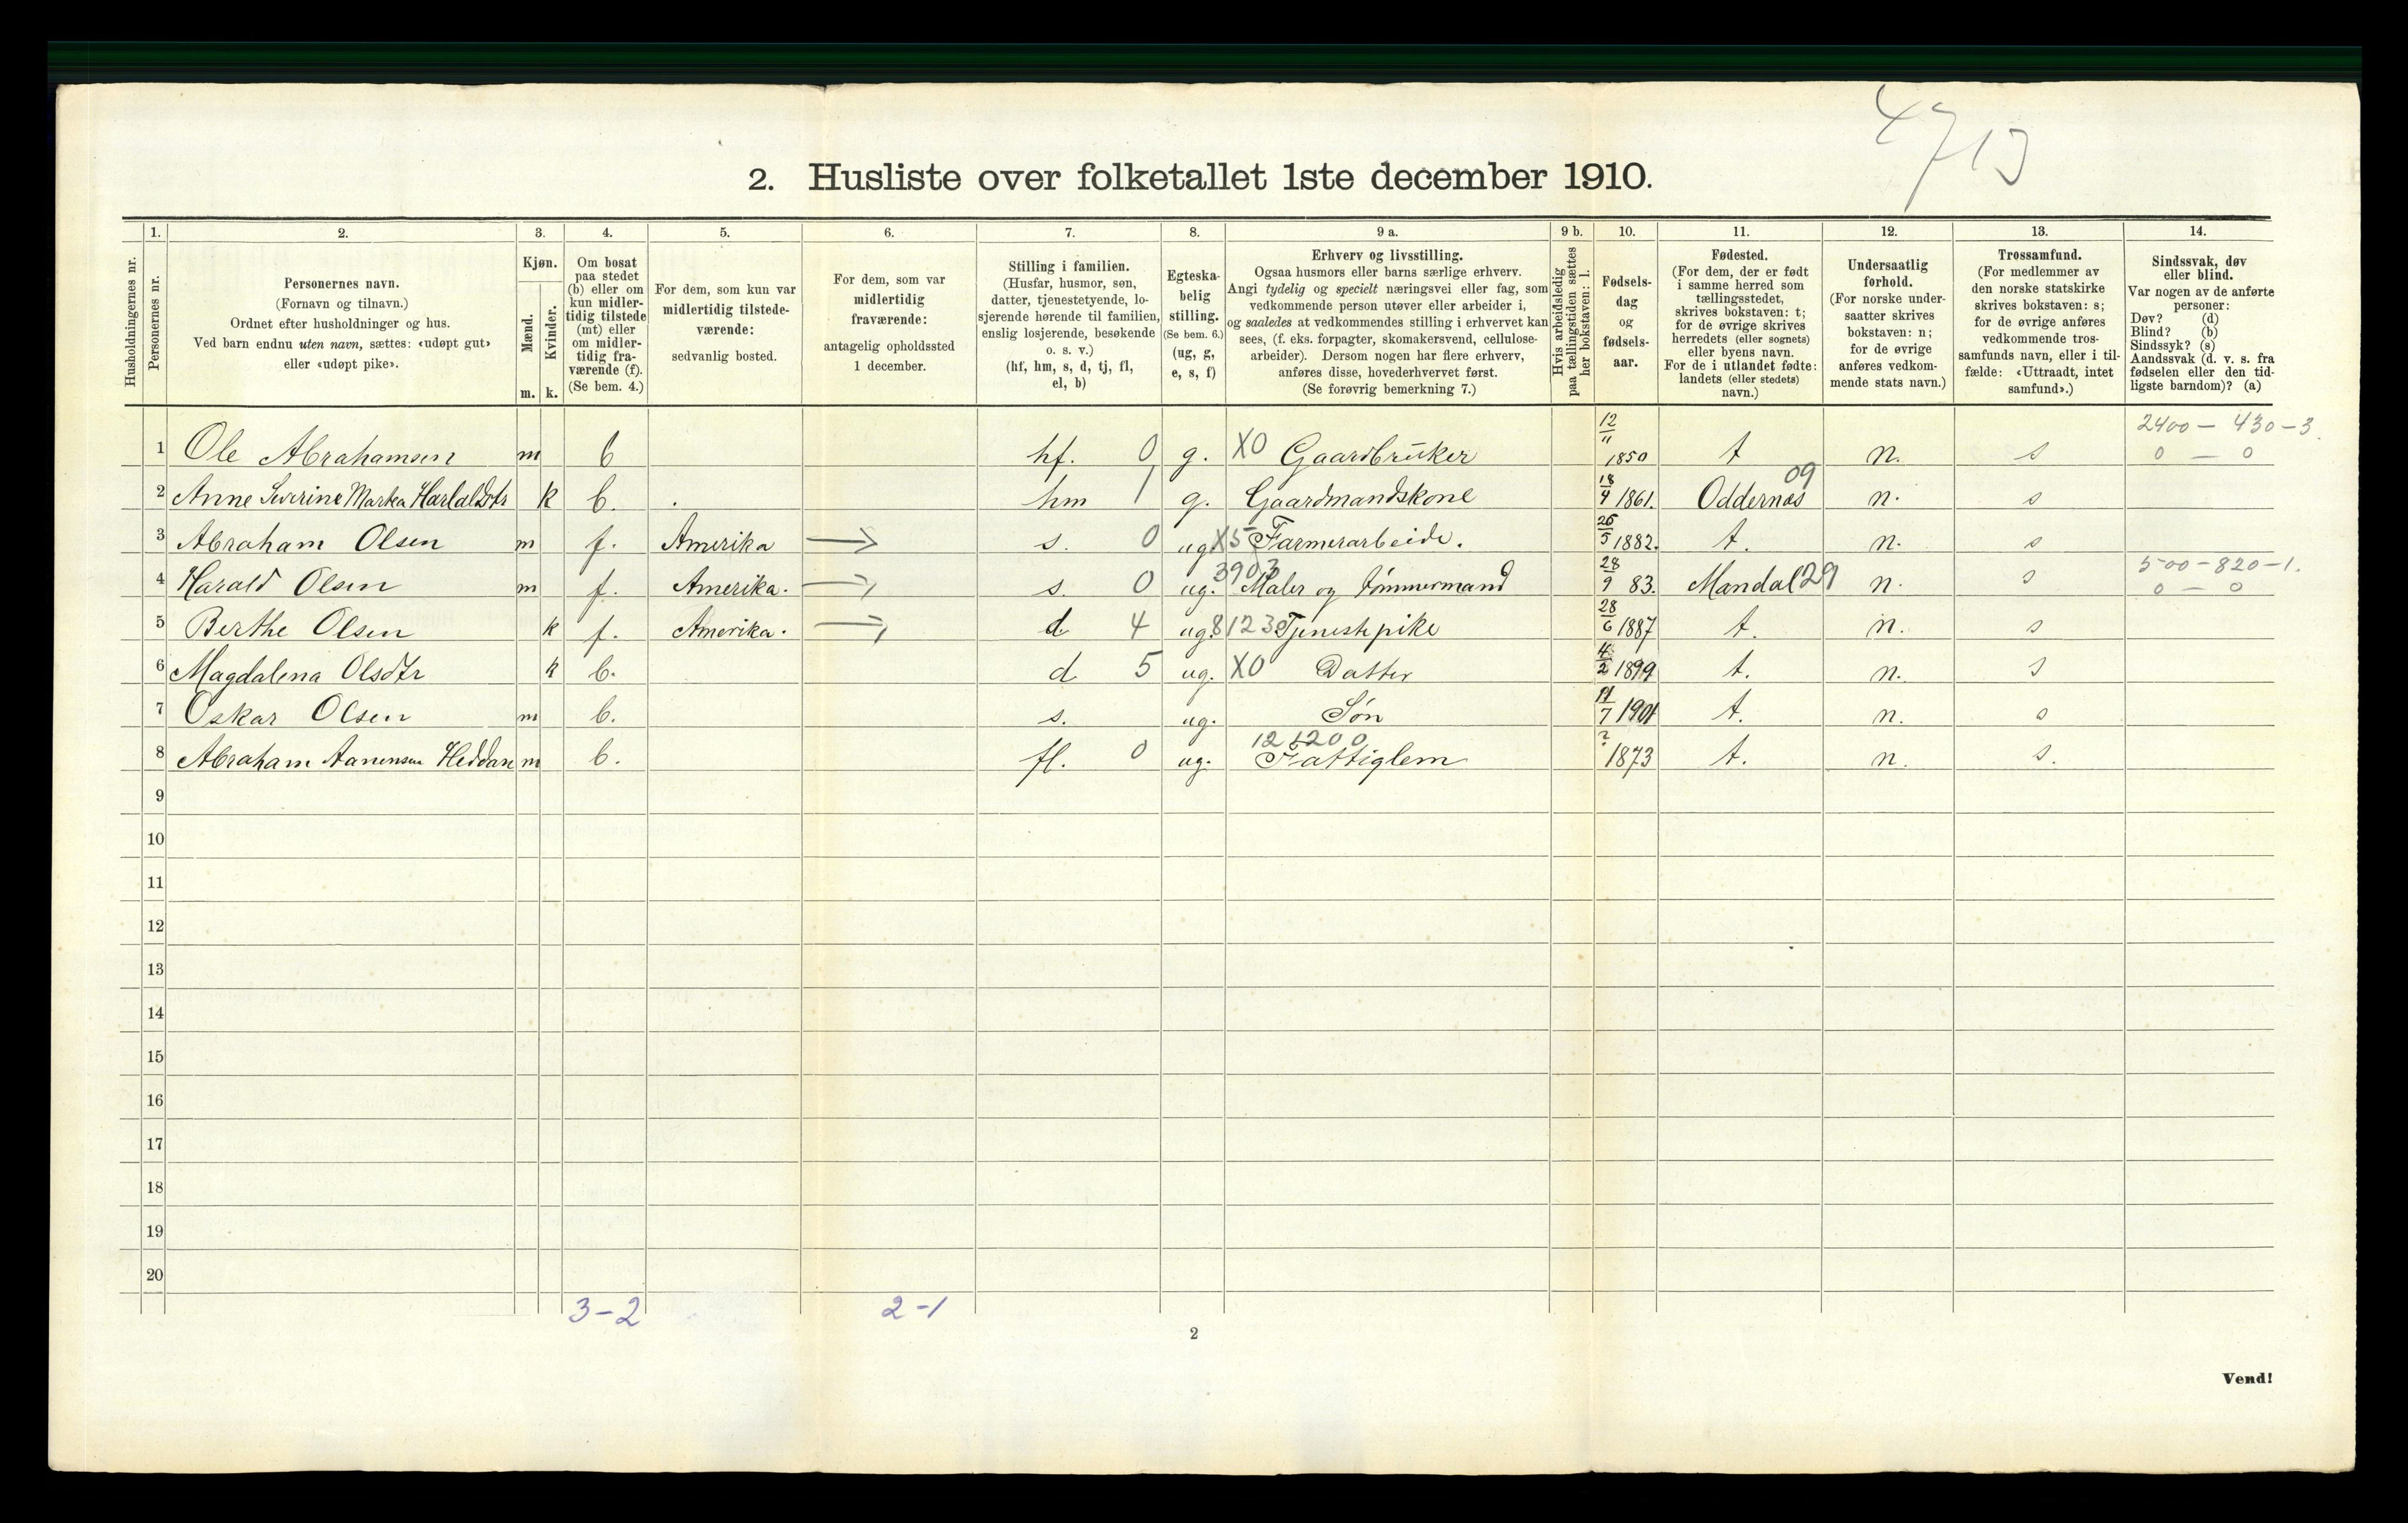 4713
2. Husliste over folketallet 1ste december 1910.
Husholdningernes nr.
1.
Personernes nr.
2.
Personernes navn.
(Fornavn og tilnavn.)
Ordnet efter husholdninger og hus.
Ved barn endnu uten navn, sættes: «udøpt gut»
eller «udøpt pike».
3.
Kjøn.
Mænd.
Kvinder.
m. k.
4.
Om bosat
paa stedet
(b) eller om
kun midler-
tidig tilstede
(mt) eller
om midler-
tidig fra-
værende (f).
(Se bem. 4.)
5.
For dem, som kun var
midlertidig tilstede-
værende:
sedvanlig bosted.
6.
For dem, som var
midlertidig
fraværende:
antagelig opholdssted
1 december.
7.
Stilling i familien.
(Husfar, husmor, søn,
datter, tjenestetyende, lo-
sjerende hørende til familien,
enslig losjerende, besøkende
o. s. v.)
(hf, hm, s, d, tj, fl,
el, b)
8.
Egteska-
belig
stilling.
(Se bem. 6.)
(ug, g,
e, s, f)
9 a.
Erhverv og livsstilling.
Ogsaa husmors eller barns særlige erhverv.
Angi tydelig og specielt næringsvei eller fag, som
vedkommende person utøver eller arbeider i,
og saaledes at vedkommendes stilling i erhvervet kan
sees, (f. eks. forpagter, skomakersvend, cellulose-
arbeider). Dersom nogen har flere erhverv,
anføres disse, hovederhvervet først.
(Se forøvrig bemerkning 7.)
9 b.
Hvis arbeidsledig
paa tællingstiden sættes
her bokstaven: l.
10.
Fødsels-
dag
og
fødsels-
aar.
11.
Fødested.
(For dem, der er født
i samme herred som
tællingsstedet,
skrives bokstaven: t;
for de øvrige skrives
herredets (eller sognets)
eller byens navn.
For de i utlandet fødte:
landets (eller stedets)
navn.)
12.
Undersaatlig
forhold.
(For norske under-
saatter skrives
bokstaven: n;
for de øvrige
anføres vedkom-
mende stats navn.)
13.
Trossamfund.
(For medlemmer av
den norske statskirke
skrives bokstaven: s;
for de øvrige anføres
vedkommende tros-
samfunds navn, eller i til-
fælde: «Uttraadt, intet
samfund».)
14.
Sindssvak, døv
eller blind.
Var nogen av de anførte
personer:
Døv? (d)
Blind? (b)
Sindssyk? (s)
Aandssvak (d. v. s. fra
fødselen eller den tid-
ligste barndom)? (a)
1 Ole Abrahamsen m b hf. 0 g. X0 Gaardbruker 12/11 1850 t n. s 2400 - 430 - 3. 0 - 0
2 Anne Severine Martea Harlaldstr k b. hm 1 g. Gaardmandskone 18/4 1861. Oddernæs 09 n. s
3 Abraham Olsen m f. Amerika → s. 0 ug X5 Farmerarbeide. 25/5 1882. t. n. s
4 Harald Olsen m f. Amerika. → s. 0 ug. 3903 Maler og tømmermand 28/9 83. Mandal 29 n. s 500 - 820 - 1. 0 - 0
5 Berthe Olsen k f. Amerika. → d 4 ug. 8123 Tjenestpike 28/6 1887 t. n. s
6 Magdalena Olsdtr k b. d 5 ug. X0 Datter 4/2 1899 t. n. s
7 Oskar Olsen m b. s. ug. Søn 11/7 1901 t. n. s
8 Abraham Aanensen Heddan m b. fl. 0 ug. 121200 Fattiglem ? 1873 t. n. s.
9
10
11
12
13
14
15
16
17
18
19
20
3-2 2-1
2
Vend!